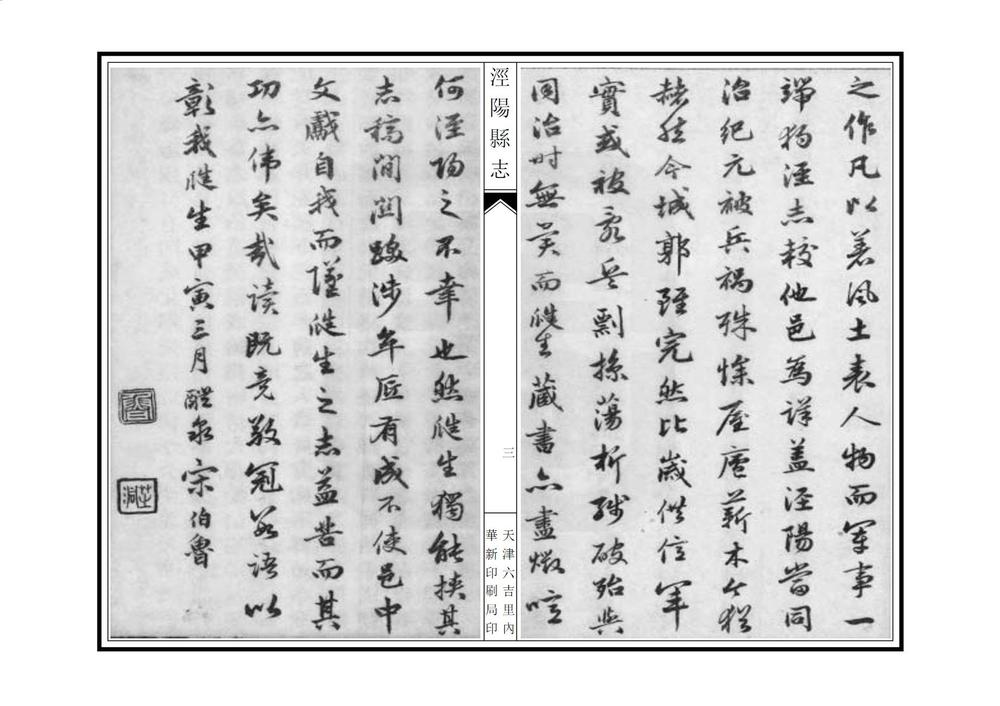 之作凡以著風土表人物而軍事一
端獨涇志較他邑為詳蓋涇陽當同
治紀元被兵禍殊慘屋廬薪木今猶
赫然今城郭雖完然比歲供信軍
實或被客兵剽掠蕩析殘破殆與
同治時無異而爔生藏書亦盡燬噫
涇陽縣志
三
天津六吉里內
華新印刷局印
何涇陽之不幸也然爔生獨能挾其
志稿間關跋涉卒底有成不使邑中
文獻自我而墜爔生之志益苦而其
功亦偉矣哉讀既竟敬冠數語以
彰我爔生甲寅三月醴泉宋伯魯